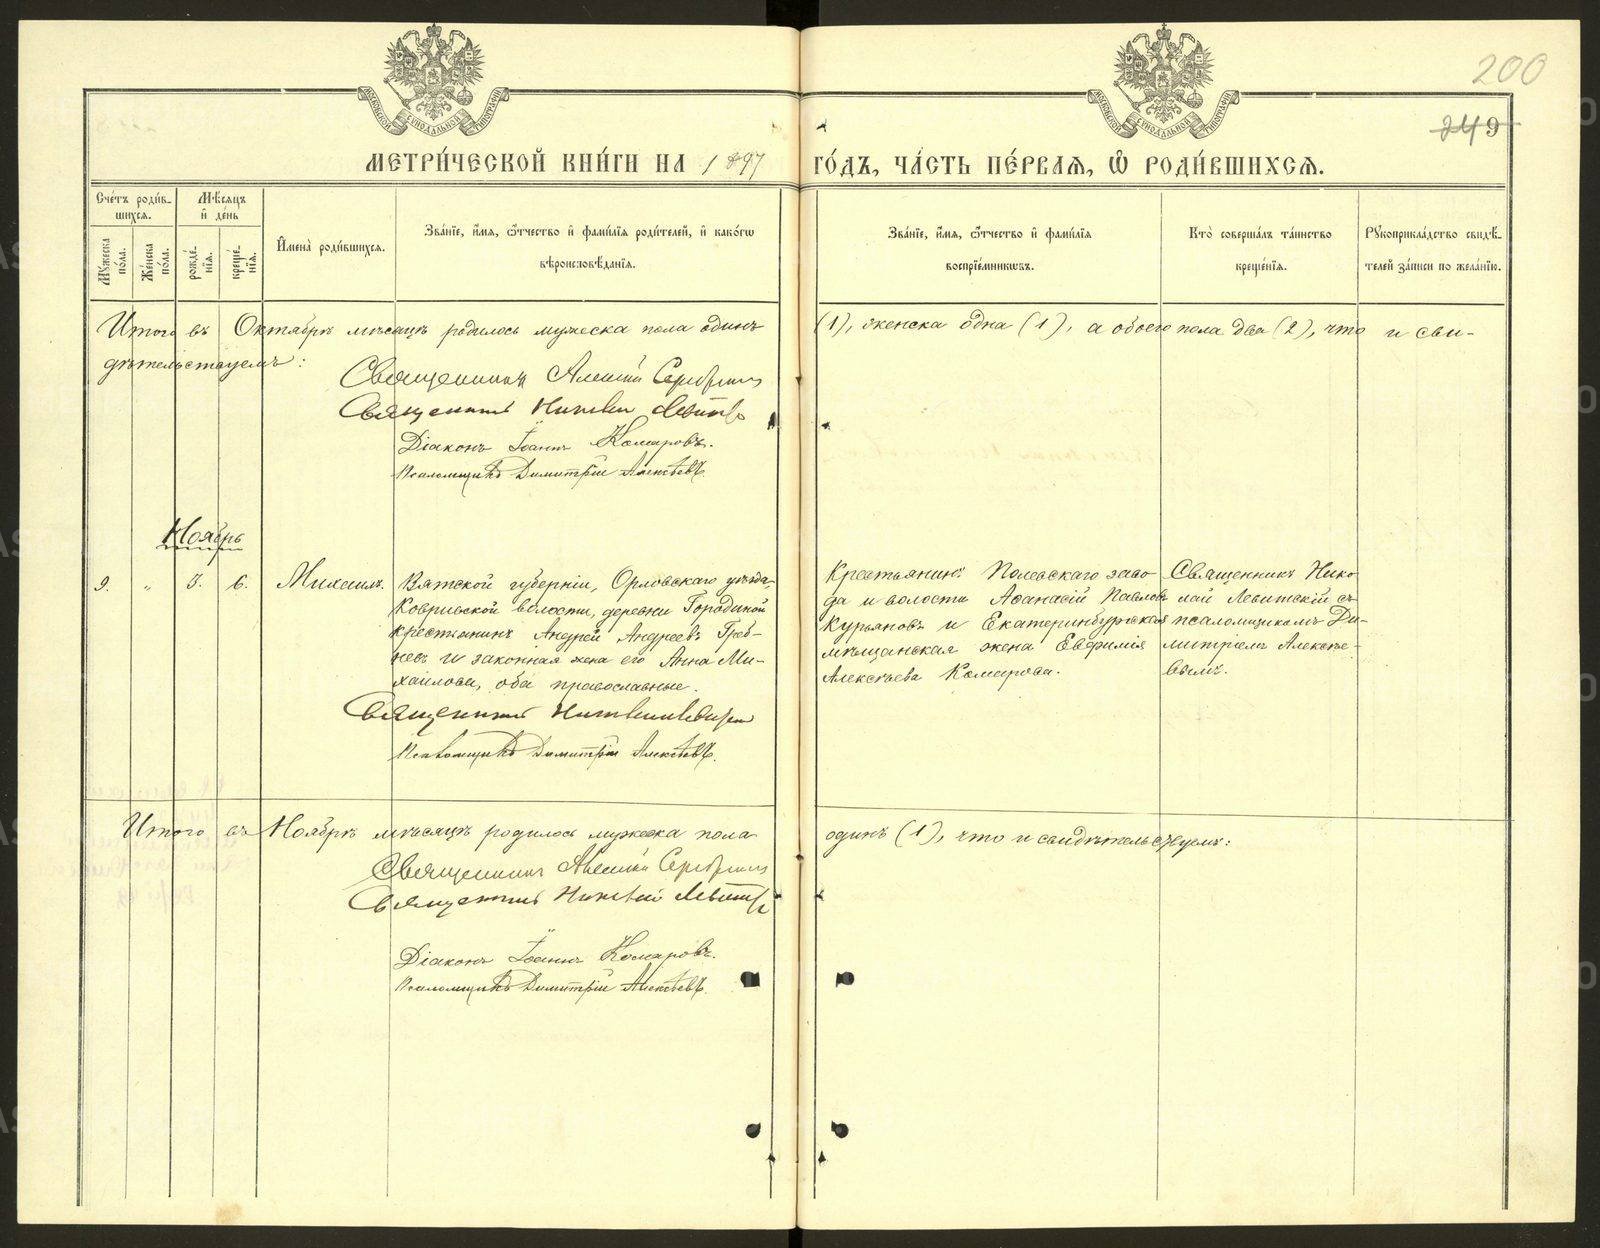 200
249
МОСКОВСКОЙ СУНОДАЛЬНОЙ ТИПОГРАФІИ
МОСКОВСКОЙ СУНОДАЛЬНОЙ ТИПОГРАФІИ
МЕТРИ́ЧЕСКОЙ КНИ́ГИ НА 1897 ГО́ДЪ, ЧА́СТЬ ПЕ́РВАЯ, Ѿ РОДИ́ВШИХСЯ.
Сче́тъ роди́в-
шихся.
Мѣ́сяцъ
и҆ де́нь
Мꙋ́жеска
по́ла.
Же́нска
по́ла.
рожде́-
нїѧ.
креще́-
нїѧ.
И҆мена̀ роди́вшихся.
Зва́нїе, и҆́мѧ, ѻ҆́тчество и҆ фами́лїѧ роди́телей, и҆ како́гѡ
вѣроисповѣ́данїѧ.
Зва́нїе, и҆́мѧ, ѻ҆́тчество и҆ фами́лїѧ
воспрїе́мникѡвъ.
Кто̀ соверша́лъ та́инство
креще́нїѧ.
Рꙋкоприкла́дство свидѣ́-
телей за́писи по жела́нїю.
Итого въ Октябрѣ мѣсяцѣ родилось мужеска пола одинъ (1), женска одна (1), а обоего пола два (2), что и сви-
дѣтельствуемъ:
Священникъ Алексій
Священникъ Николай Левитскій
Діаконъ Іоаннъ Комаровъ.
Псаломщикъ Димитрій Алексѣевъ.
Ноябрь
9. " 3. 6. Михаилъ.
Вятской губерніи, Орловскаго уѣзда
волости, деревни
крестьянинъ Андрей Андреевъ Греб-
невъ и законная жена его Анна Ми-
хайлова, оба православные.
Священникъ Николай Левитскій
Псаломщикъ Димитрій Алексѣевъ.
Крестьянинъ Полевскаго заво-
да и волости Аѳанасій Павловъ
Курьяновъ и Екатеринбургская
мѣщанская жена Евфимія
Алексѣева Комарова.
Священникъ Нико-
лай Левитскій съ
псаломщикомъ Ди-
митріемъ Алексѣе-
вымъ.
Итого въ Ноябрѣ мѣсяцѣ родилось мужеска пола одинъ (1), что и свидѣтельствуемъ:
Священникъ Алексій
Священникъ Николай Левитскій
Діаконъ Іоаннъ Комаровъ.
Псаломщикъ Димитрій Алексѣевъ.